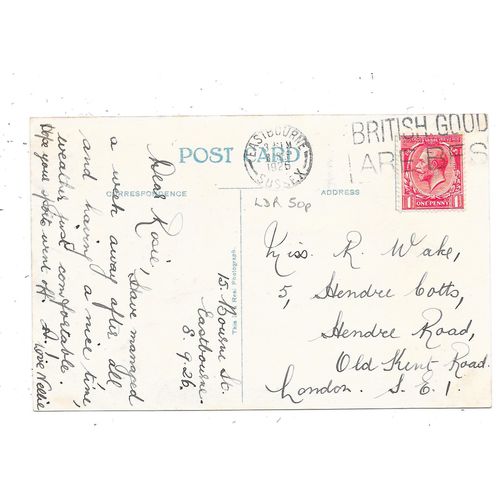 POST CARD
CORRESPONDENCE
ADDRESS
This is a Real Photograph.
EASTBOURNE
1926
SUSSEX
BRITISH GOOD
ARE BES
ONE PENNY
LDR 50p
Miss. R. Wake,
5, Hendre Cotts,
Hendre Road,
Old Kent Road.
London. S.E.1
15. Bourne St.
Eastbourne
8.9.26.
Dear Rosie, Have managed
a week away after all
and having a nice time,
weather just comfortable.
Hope your sports went off
Love Nellie